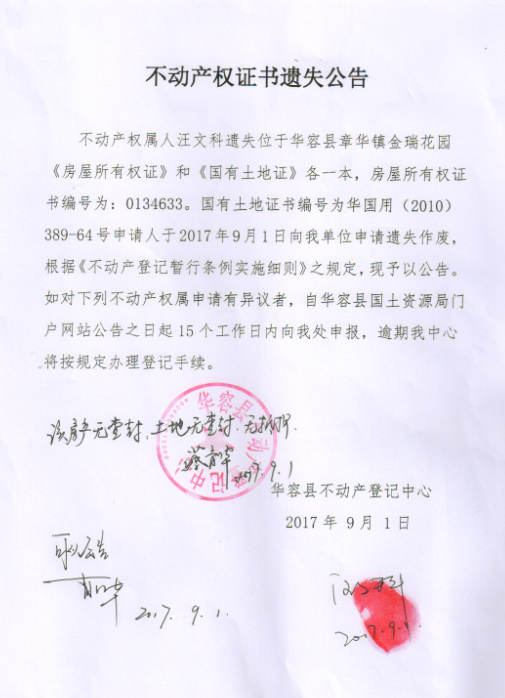 不动产权证书遗失公告
不动产权属人汪文科遗失位于华容县章华镇金瑞花园
《房屋所有权证》和《国有土地证》各一本，房屋所有权证
书编号为：0134633。国有土地证书编号为华国用（2010）
389-64号申请人于2017年9月1日向我单位申请遗失作废，
根据《不动产登记暂行条例实施细则》之规定，现予以公告。
如对下列不动产权属申请有异议者，自华容县国土资源局门
户网站公告之日起15个工作日内向我处申报，逾期我中心
将按规定办理登记手续。
该房产无查封，土地无查封，无抵押。
2017.9.1
华容县不动产登记中心
2017年9月1日
可公告
2017.9.1.
汪文科
2017.9.1